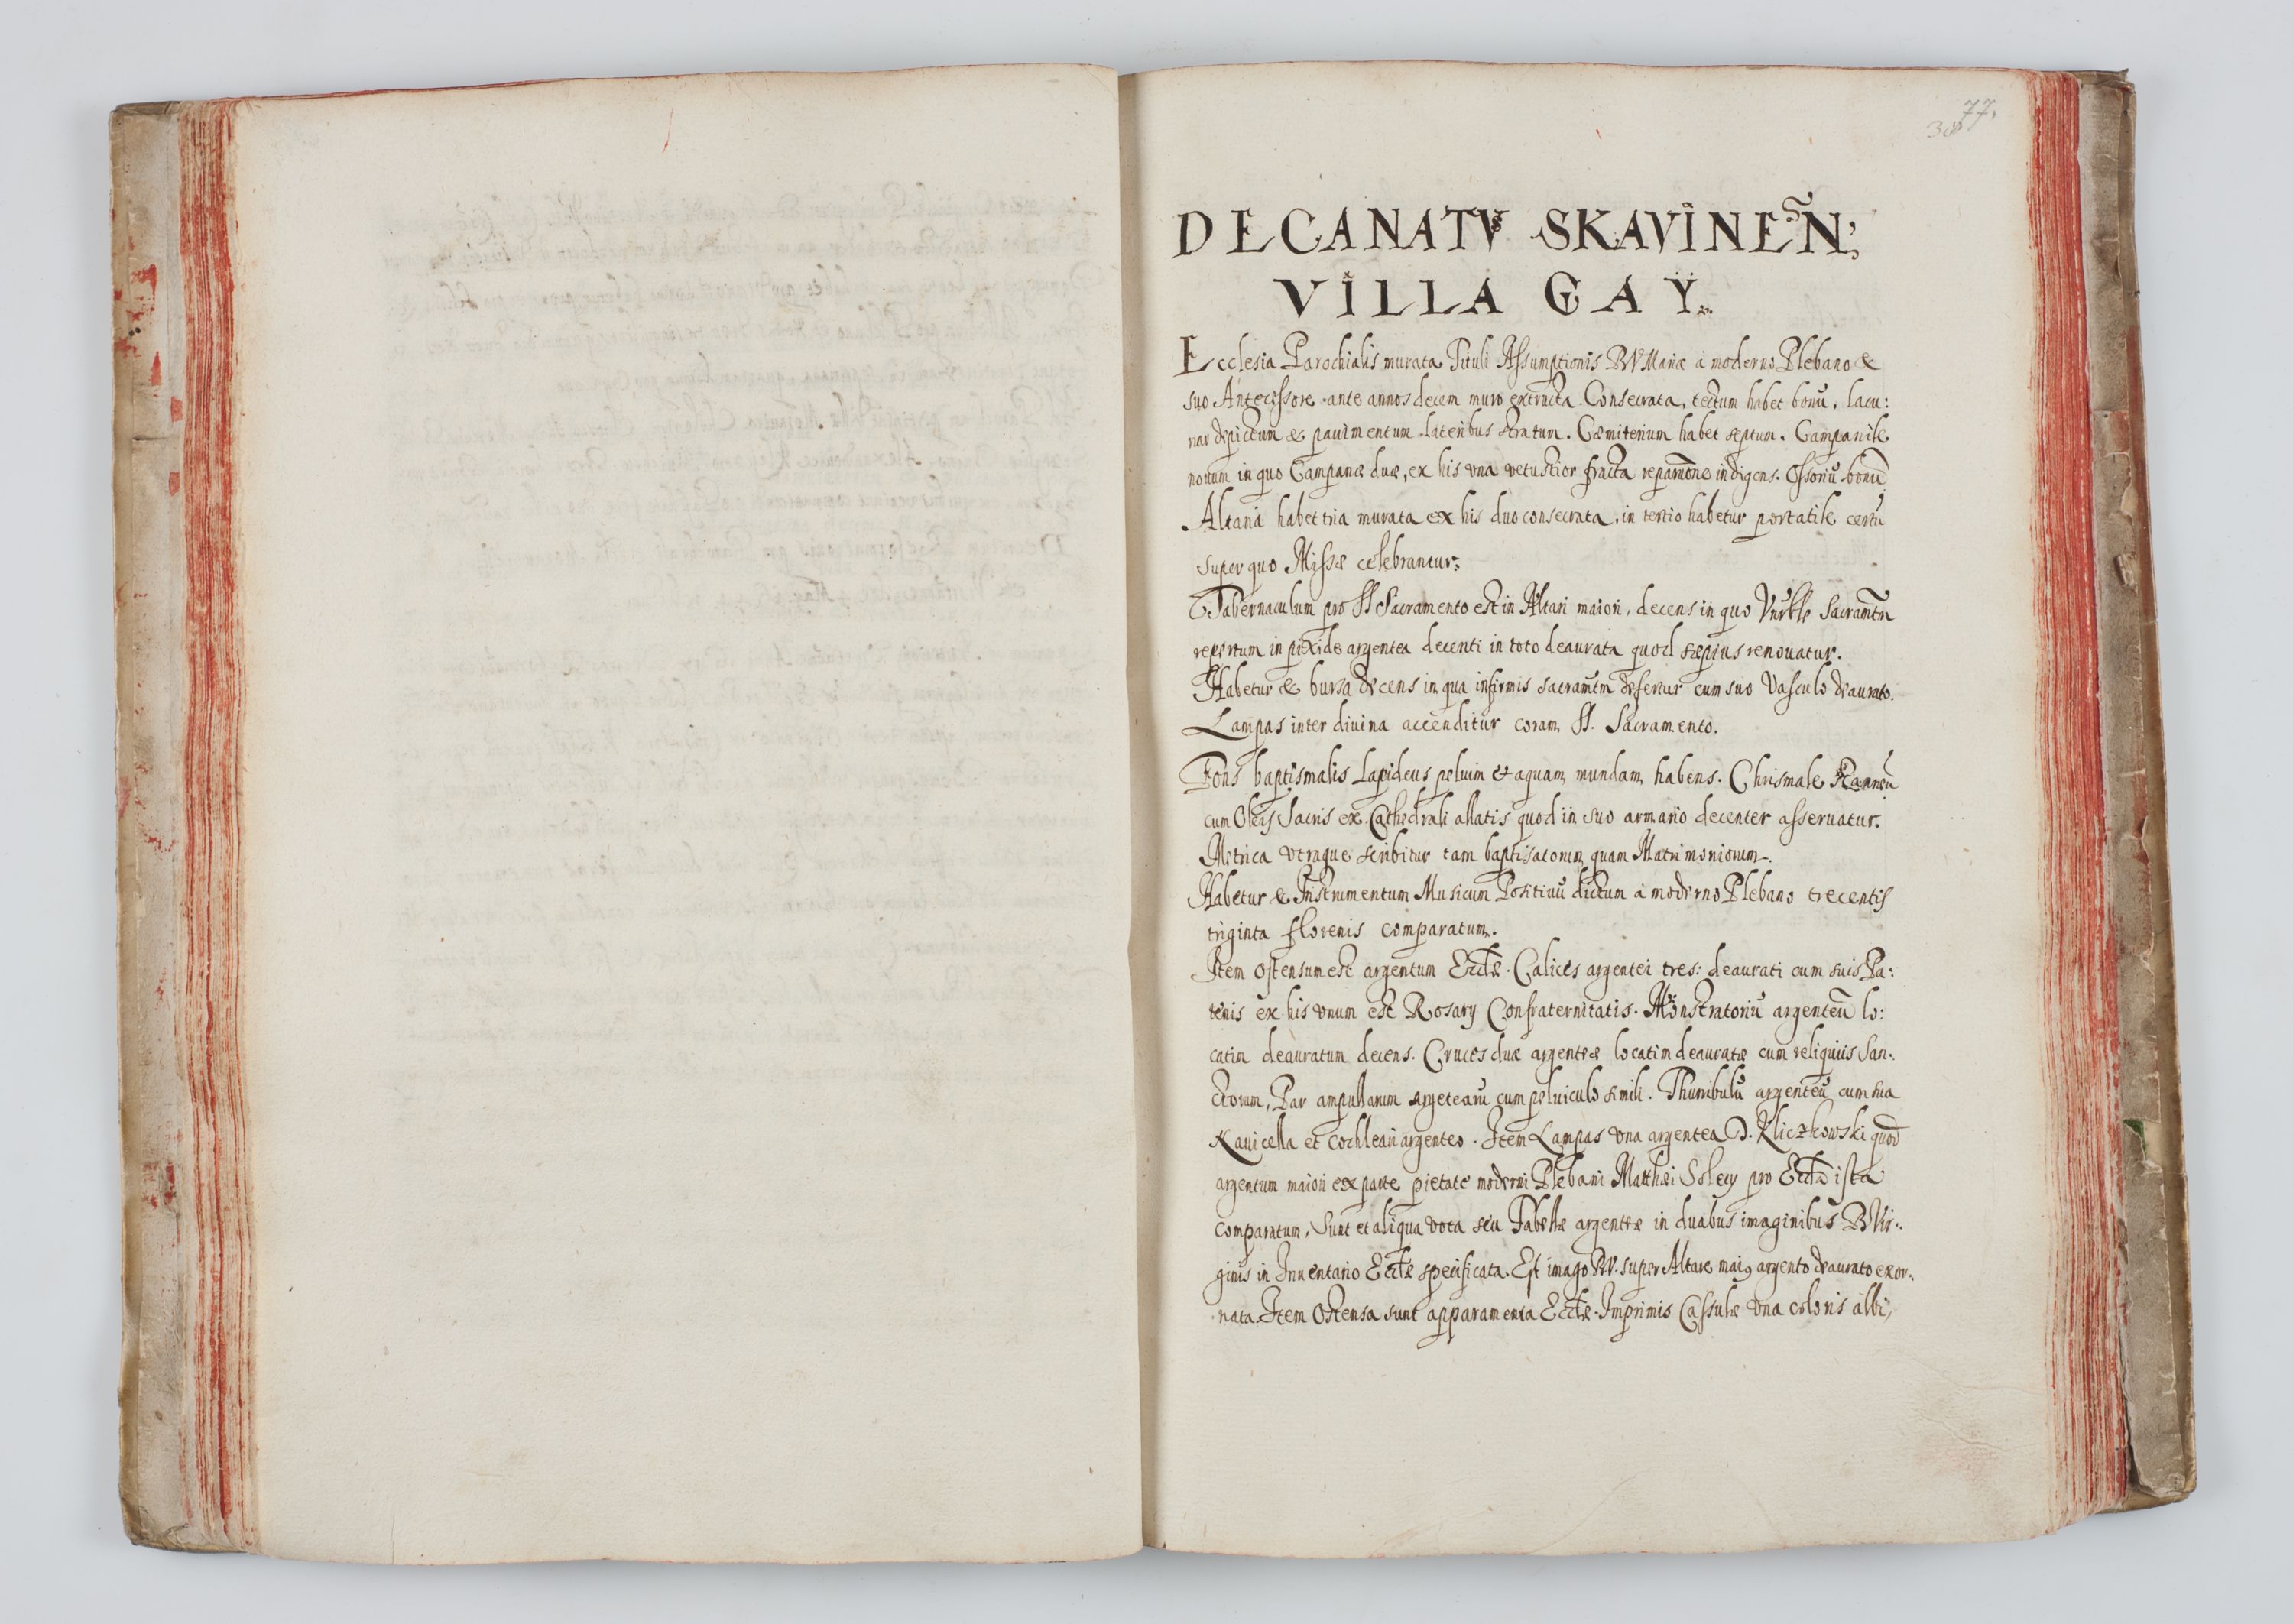 77.
38
DECANATVS SKAVINEN̄;
VILLA GAY.
Ecclesia Parochialis murata Tituli Assumptionis BVMariæ à moderno Plebano &
suo Antecessore ante annos decem muro extructa. Consecrata, tectum habet bonū, lacu:
nar depictum & pauimentum lateribus stratum. Cæmiterium habet septum. Campanile
nouum in quo Campanæ duæ, ex his vna vetustior fracta reparāone indigens. Ossoriū bonū
Altaria habet tria murata ex his duo consecrata, in tertio habetur portatile certū
super quo Missæ celebrantur.
Tabernaculum pro SS Sacramento est in Altari maiori, decens in quo Vnrble Sacramētn
repertum in pixide argentea decenti in toto deaurata quod sæpius renouatur.
Habetur & bursa decens in qua infirmis sacramētm defertur cum suo Vasculo deaurato.
Lampas inter diuina accenditur coram SS. Sacramento.
Fons baptismalis Lapideus peluim & aquam mundam habens. Chrismale stanneū
cum Oleis Sacris ex Cathedrali allatis quod in suo armario decenter asseruatur.
Metrica vtraque scribitur tam baptisatorum quam Matrimoniorum.
Habetur & Instrumentum Musicum Positiuū dictum à moderno Plebano trecentis
triginta florenis comparatum.
Item ostensum est argentum Eccłæ. Calices argentei tres: deaurati cum suis Pa:
tenis ex his vnum est Rosarÿ Confraternitatis. Monstratoriū argenteū lo:
catim deauratum decens. Cruces duæ argenteæ locatim deauratæ cum reliquiis San:
ctorum, Par ampullarum argetearū cum peluiculo simili. Thuribulū argenteū cum sua
Nauicella et cochleari argenteo. Item Lampas vna argentea D. Kliczkowski quod
argentum maiori ex parte pietate moderni Plebani Matthæi Solecÿ pro Eccła ista
comparatum, Sunt et aliqua vota seu Tabellæ argenteæ in duabus imaginibus B Vir:
ginis in Inuentario Eccłæ specificata. Est imago BV. super Altare mai9 argento deaurato exor:
nata. Item Ostensa sunt apparamenta Eccłæ. Imprimis Cassulæ vna coloris albi,